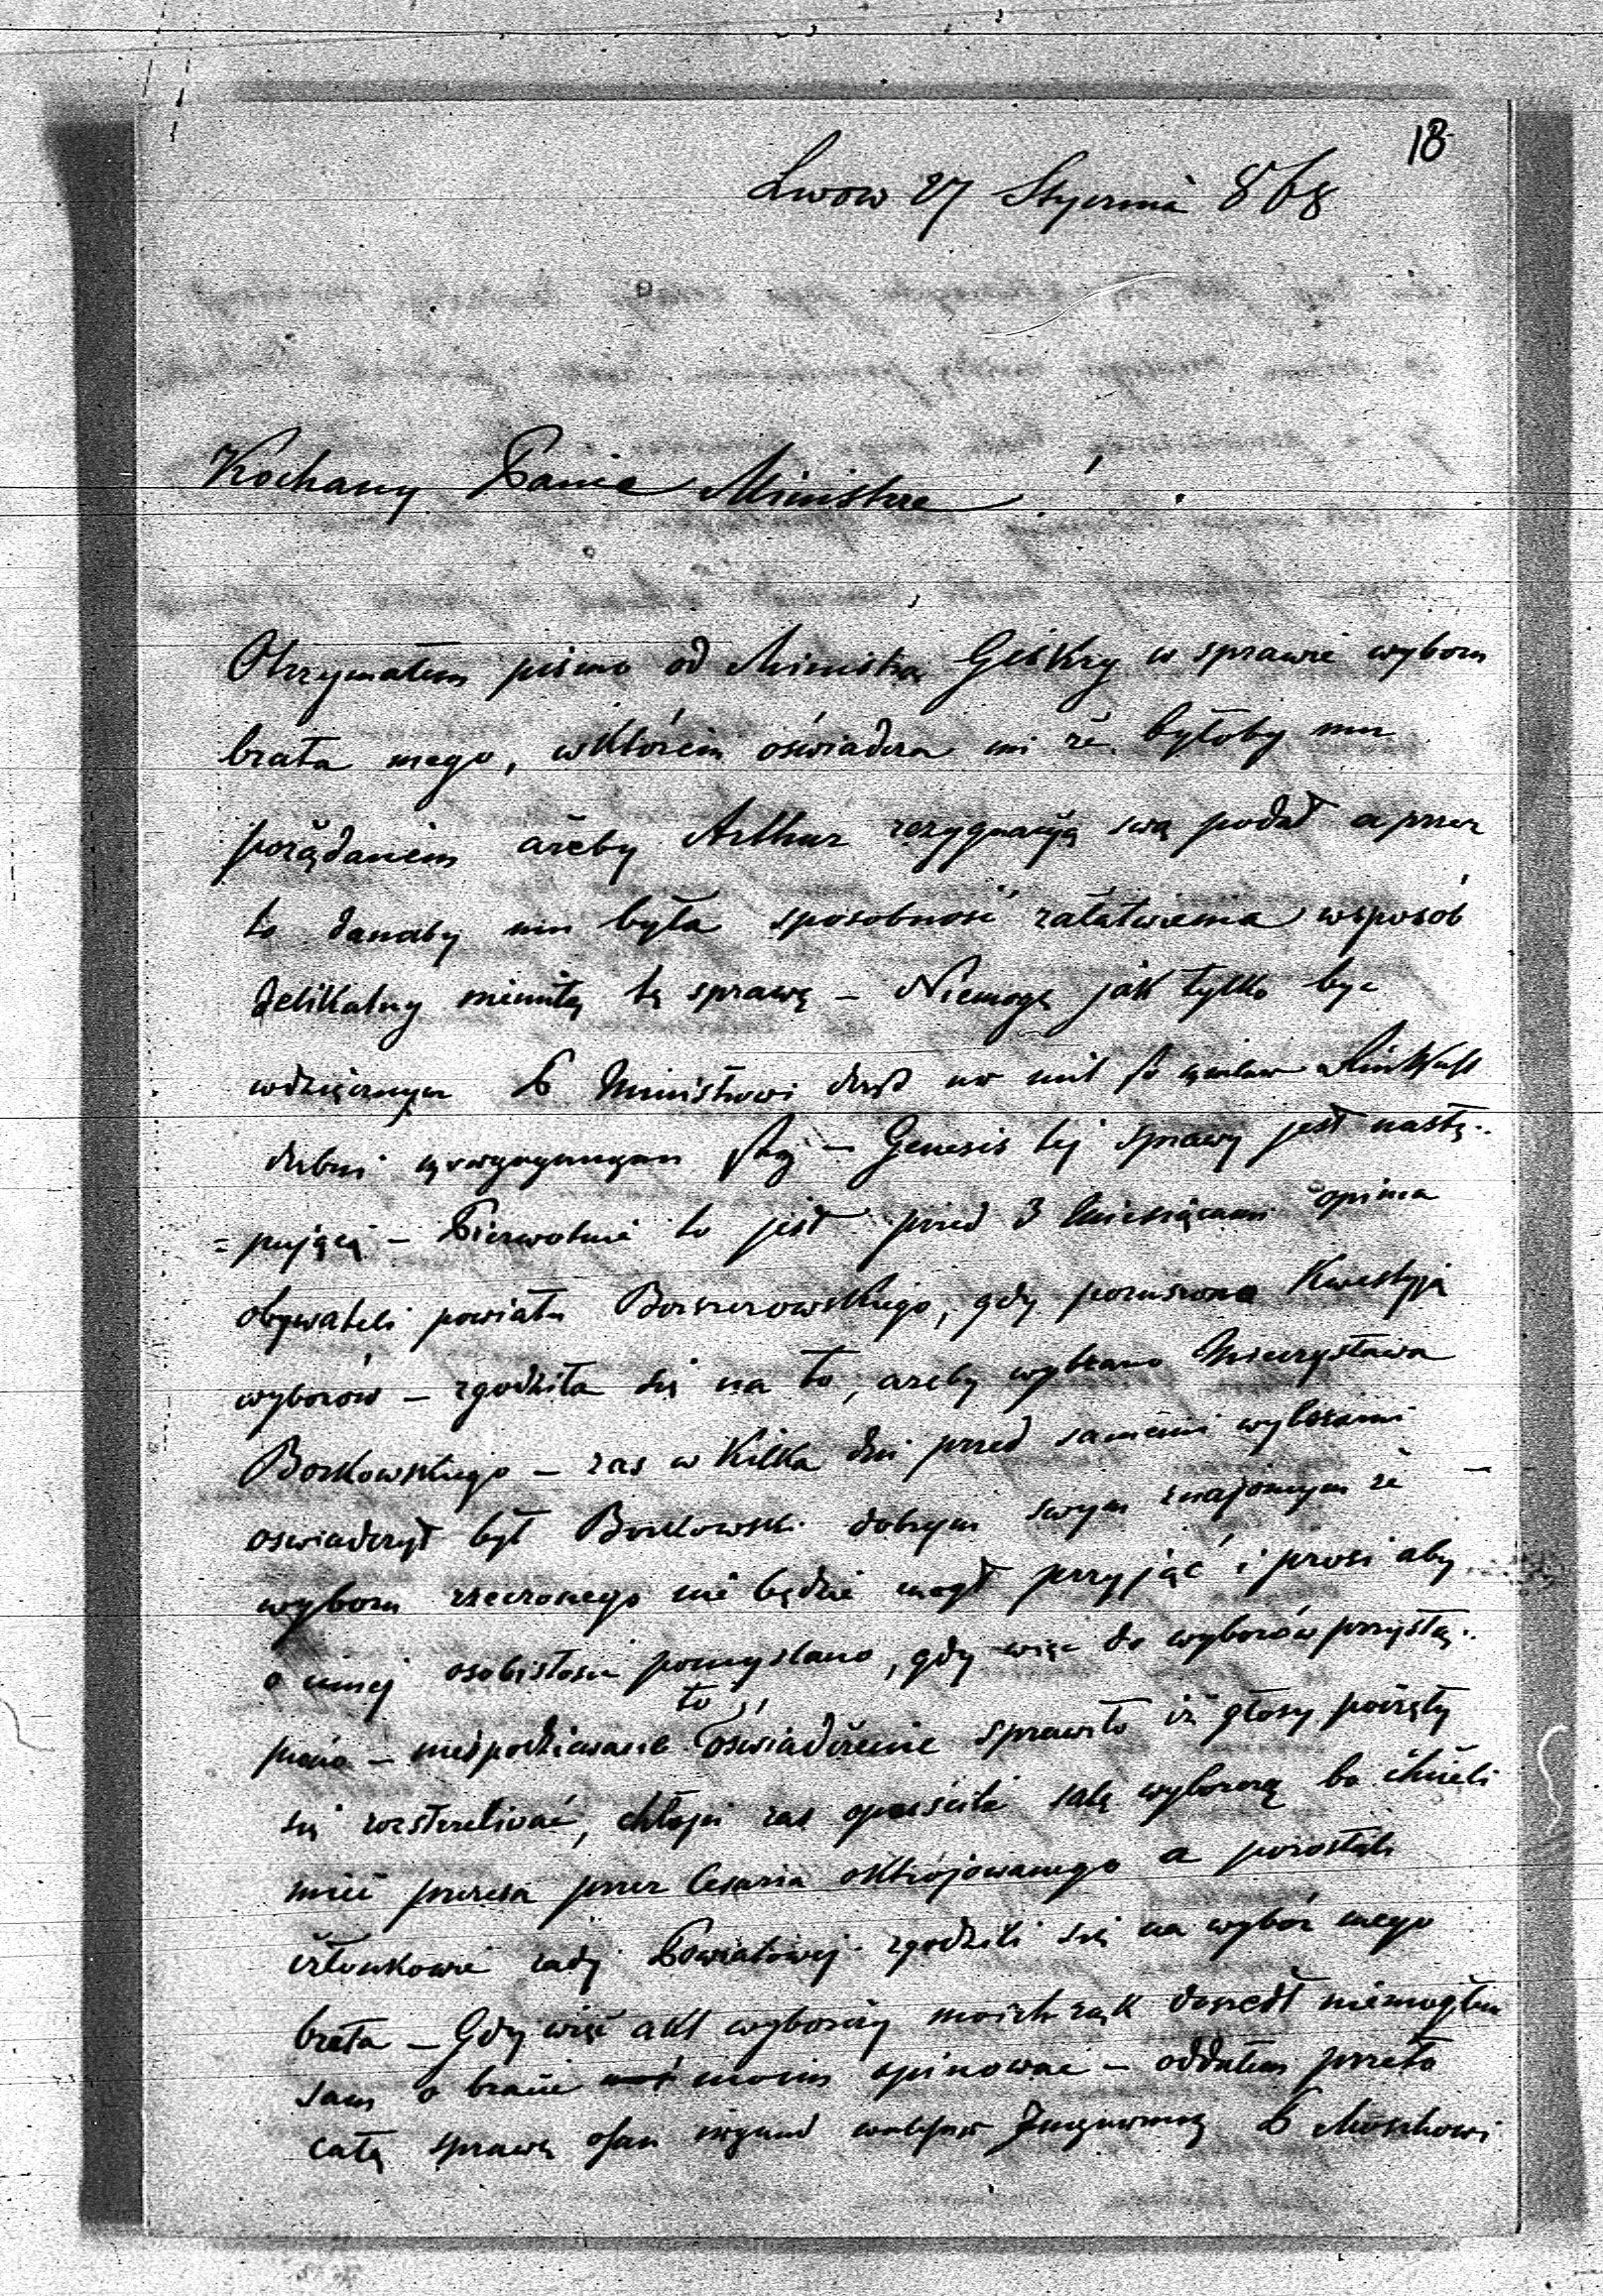 18
Lwow 27 Stycznia 868
Kochany Panie Ministrze
Otrzymałem pismo od Ministra Giskry w sprawie wyboru
brata mego, w którém oświadcza mi że byłoby mu
pożądaniem ażeby Arthur rezygnacyą swą podał a przez
to danaby mu była sposobność załatwienia wsposób
delikatny niemiłą tą sprawę – Niemogę jak tylko być
wdzięcznym P Ministrowi daß er mit so
– Genesis tej sprawy jest nastę..
= pującą – Pierwotnie to jest przed 3 Miesiącami opinia
obywateli powiatu Borszczowskiego, gdy poruszono kwestyją
wyborów – zgodziła się na to, ażeby wybrano Mieczysława
Borkowskiego – zas w kilka dni przed samemi wyborami
oswiadczył był Borkowski dobrym swym znajomym że
wyboru rzeczonego nie będzie mogł przyjąć i prosi aby
o innej osobistosci pomyslano, gdy więc do wyborów przystą..
piono – niespodziewanie to oświadczenie sprawiło iż głosy poczęły
się rozstrzeliwać, chłopi zas opuścili salę wyborczą bo chcieli
mieć prezesa przez Cesarza oktrojowanego a pozostali
członkowie rady Powiatowej zgodzili się na wybór mego
brata – Gdy więc akt wyborczy moich rąk doszedł niemogłem
sam o bracie moim opinować – oddałem przeto
całą sprawę P Moschowi